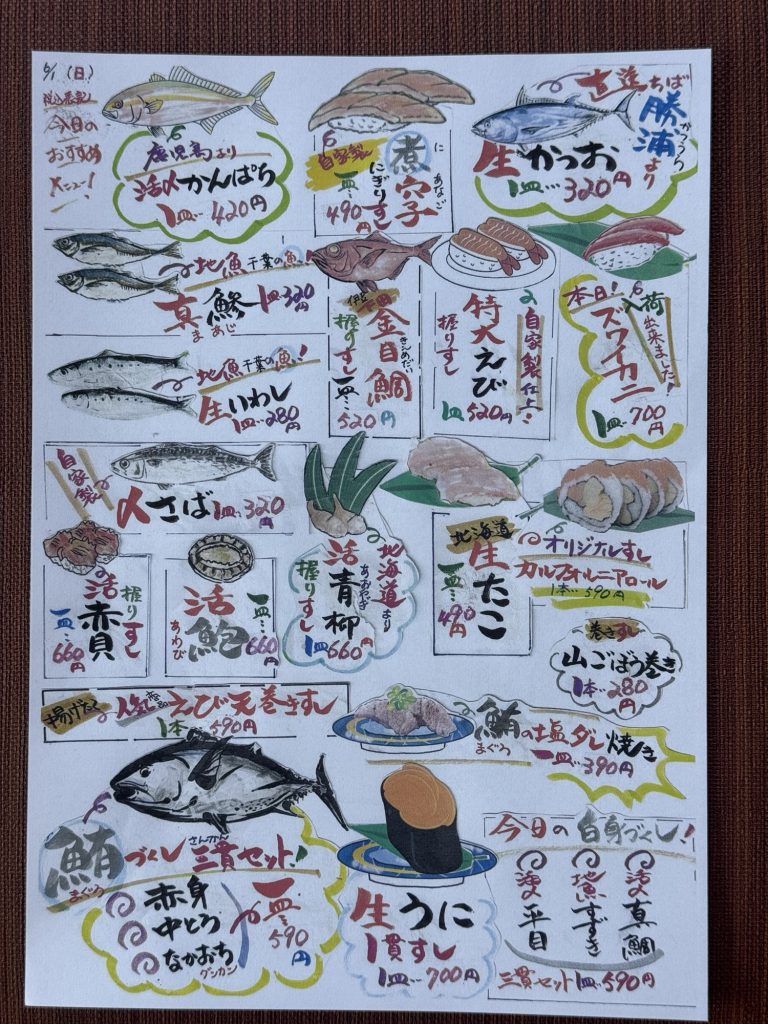 6/1 (日)
税込表記
今日の
おすすめ
メニュー!
鹿児島より
活〆かんぱち
1皿…420円
自家製
煮穴子
に あなご
にぎりすし
一皿…490円
直送ちば
勝浦より
かつうら
生がつお
1皿…320円
地魚 千葉の魚!
真鯵 1皿320円
まあじ
地魚 千葉の魚!
生いわし
1皿…280円
金目鯛
きんめだい
握りすし 一皿…520円
自家製仕立
特大えび
握りすし
1皿520円
本日!入荷出来ました!
ズワイカニ
1皿…700円
自家製
〆さば 1皿…320円
活赤貝
握りすし
一皿…660円
活鮑
あわび
一皿…660円
北海道より
活青柳
あおやぎ
握りすし
1皿660円
北海道
生たこ
一皿…490円
オリジナルすし
カルフォルニアロール
1本…590円
巻きすし
山ごぼう巻き
1本…280円
揚げたて 人気 えび天巻きすし
1本590円
鮪の塩ダレ焼き
まぐろ
一皿…390円
鮪づくし三貫セット!
まぐろ
さんかん
赤身
中とろ
なかおち
グンカン
一皿…590円
生うに
1貫すし
1皿…700円
今日の白身づくし!
活〆真鯛
地魚すずき
活〆平目
三貫セット1皿…590円